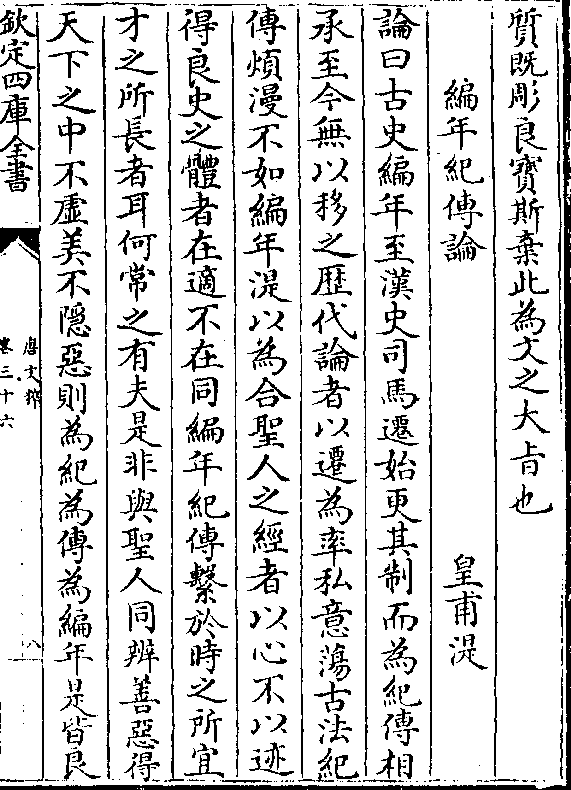 質既彫良寶斯棄此為文之大旨也
編年紀傳論　皇甫湜
論曰古史編年至漢史司馬遷始更其制而為紀傳相
承至今無以移之歴代論者以遷為率私意蕩古法紀
傳煩漫不如編年湜以為合聖人之經者以心不以迹
得良史之體者在適不在同編年紀傳繫於時之所宜
才之所長者耳何常之有夫是非與聖人同辨善惡得
天下之中不虛美不隠惡則為紀為傳為編年是皆良
欽定四庫全書
唐文粹
卷三十六
八